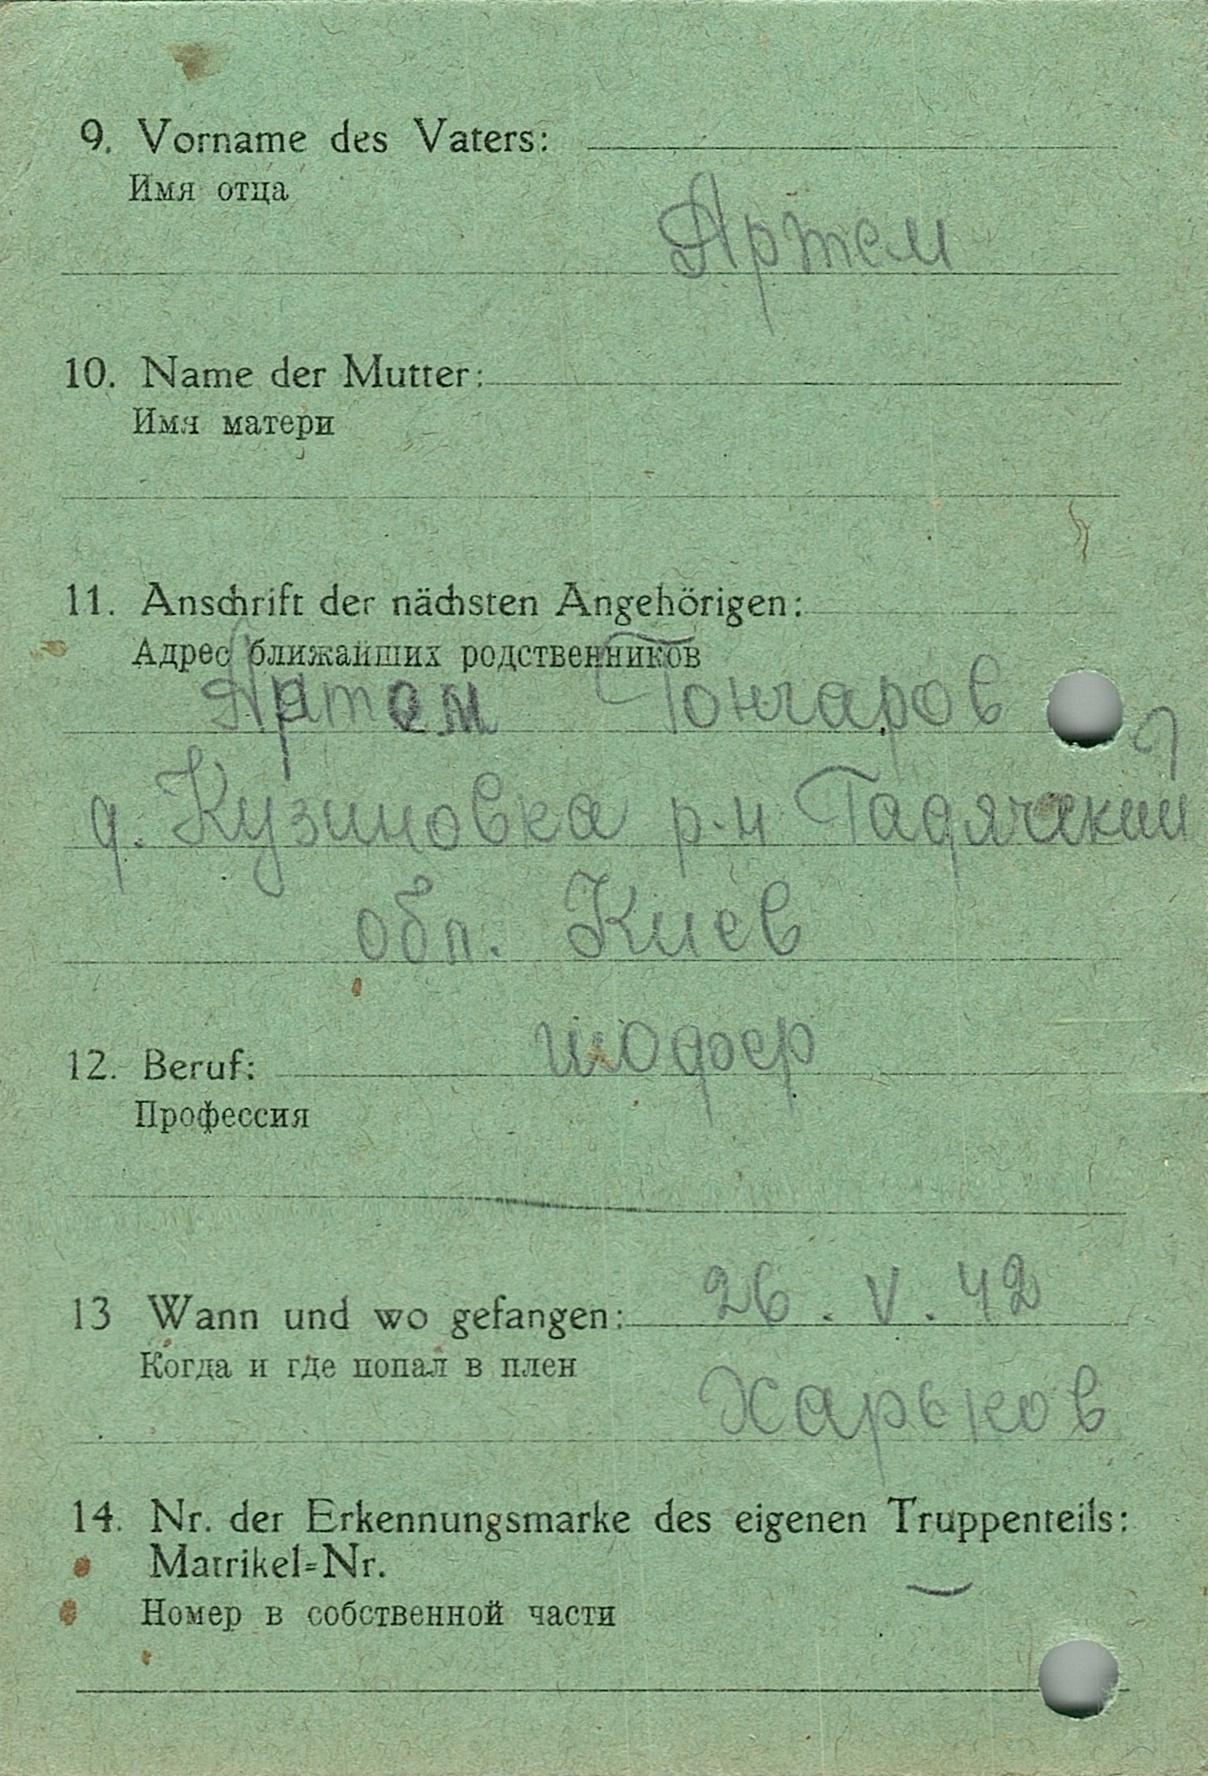 9. Vorname des Vaters:
Имя отца
Артем
10. Name der Mutter:
Имя матери
11. Anschrift der nächsten Angehörigen:
Адрес ближайших родственников
Артем Гончаров
д. Кузиновка р-н Гадячский
обл. Киев
12. Beruf: шофер
Профессия
13 Wann und wo gefangen: 26. V. 42
Когда и где попал в плен
Харьков
14. Nr. der Erkennungsmarke des eigenen Truppenteils:
Matrikel=Nr.
Номер в собственной части